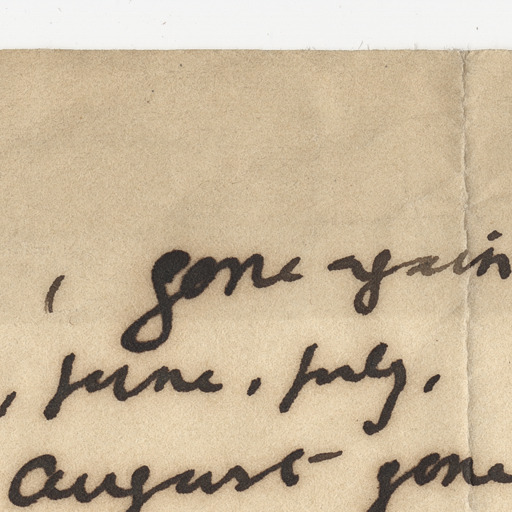 , gone again
, June, July,
August gone